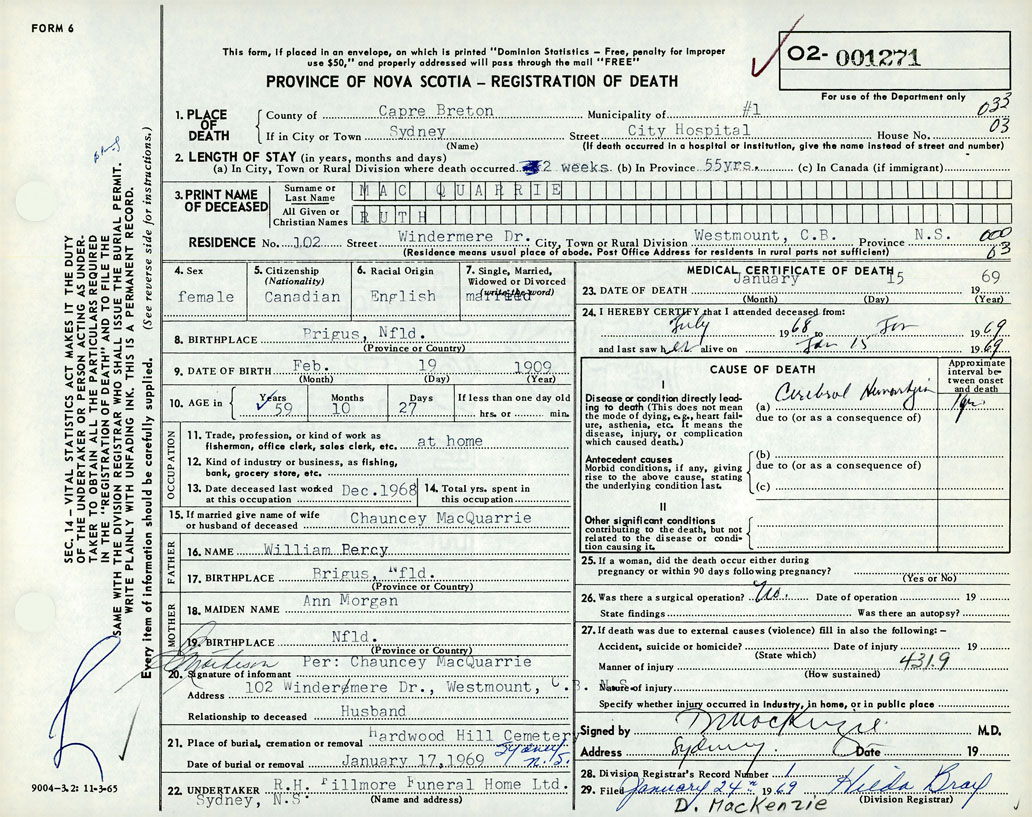 FORM 6
This form, if placed in an envelope, on which is printed "Dominion Statistics – Free, penalty for improper
use $50," and properly addressed will pass through the mail "FREE"
PROVINCE OF NOVA SCOTIA – REGISTRATION OF DEATH
02- 001271
For use of the Department only
033
03
1. PLACE OF DEATH
County of Capre Breton Municipality of #1
If in City or Town Sydney Street City Hospital House No.
(Name) (If death occurred in a hospital or institution, give the name instead of street and number)
2. LENGTH OF STAY (in years, months and days)
(a) In City, Town or Rural Division where death occurred 2 weeks (b) In Province 55yrs. (c) In Canada (if immigrant)
3. PRINT NAME OF DECEASED
Surname or Last Name MAC QUARRIE
All Given or Christian Names RUTH
RESIDENCE No. 102 Street Windermere Dr. City, Town or Rural Division Westmount, C.B. Province N.S.
(Residence means usual place of abode. Post Office Address for residents in rural parts not sufficient)
000
03
4. Sex
female
5. Citizenship
(Nationality)
Canadian
6. Racial Origin
English
7. Single, Married,
Widowed or Divorced
(write the word)
married
8. BIRTHPLACE Brigus, Nfld.
(Province or Country)
9. DATE OF BIRTH Feb. 19 1909
(Month) (Day) (Year)
10. AGE in Years Months Days If less than one day old
59 10 27 hrs. or min.
OCCUPATION
11. Trade, profession, or kind of work as
fisherman, office clerk, sales clerk, etc. at home
12. Kind of industry or business, as fishing,
bank, grocery store, etc.
13. Date deceased last worked
at this occupation Dec.1968
14. Total yrs. spent in
this occupation
15. If married give name of wife
or husband of deceased Chauncey MacQuarrie
FATHER
16. NAME William Percy
17. BIRTHPLACE Brigus, Nfld.
(Province or Country)
MOTHER
18. MAIDEN NAME Ann Morgan
19. BIRTHPLACE Nfld.
(Province or Country)
20. Signature of informant Per: Chauncey MacQuarrie
Address 102 Windermere Dr., Westmount, C.B. N.S.
Relationship to deceased Husband
21. Place of burial, cremation or removal Hardwood Hill Cemetery
Sydney N.S.
Date of burial or removal January 17,1969
22. UNDERTAKER R.H. Fillmore Funeral Home Ltd.
Sydney, N.S. (Name and address)
MEDICAL CERTIFICATE OF DEATH
23. DATE OF DEATH January 15 1969
(Month) (Day) (Year)
24. I HEREBY CERTIFY that I attended deceased from:
July 1968 to Jan 1969
and last saw her alive on Jan 15 1969
CAUSE OF DEATH
Approximate interval between onset and death
I
Disease or condition directly leading to death (This does not mean
the mode of dying, e.g., heart failure, asthenia, etc. It means the
disease, injury, or complication
which caused death.)
(a) Cerebral
due to (or as a consequence of)
Antecedent causes
Morbid conditions, if any, giving
rise to the above cause, stating
the underlying condition last.
(b)
due to (or as a consequence of)
(c)
II
Other significant conditions
contributing to the death, but not
related to the disease or condition causing it.
25. If a woman, did the death occur either during
pregnancy or within 90 days following pregnancy?
(Yes or No)
26. Was there a surgical operation? No. Date of operation 19
State findings Was there an autopsy?
27. If death was due to external causes (violence) fill in also the following: –
Accident, suicide or homicide? Date of injury 19
(State which) 4319
Manner of injury
(How sustained)
Nature of injury
Specify whether injury occurred in industry, in home, or in public place
Signed by D MacKenzie M.D.
Address Sydney. Date 19
28. Division Registrar's Record Number 1
29. Filed January 24th 1969 Hilda Bray
(Division Registrar)
D. MacKenzie
SEC. 14 – VITAL STATISTICS ACT MAKES IT THE DUTY
OF THE UNDERTAKER OR PERSON ACTING AS UNDER-
TAKER TO OBTAIN ALL THE PARTICULARS REQUIRED
IN THE "REGISTRATION OF DEATH" AND TO FILE THE
SAME WITH THE DIVISION REGISTRAR WHO SHALL ISSUE THE BURIAL PERMIT.
WRITE PLAINLY WITH UNFADING INK. THIS IS A PERMANENT RECORD.
Every item of information should be carefully supplied. (See reverse side for instructions.)
9004-3.2: 11-3-65